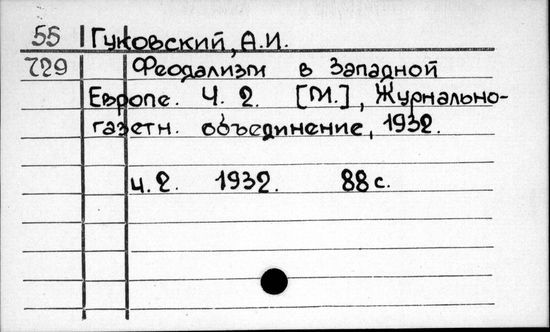 55 Гуковский, А.И.
729 Феодализм в Западной
Европе. Ч. 2. [М.], Журнально-
газетн. объединение, 1932.
ч.2. 1932. 88 с.